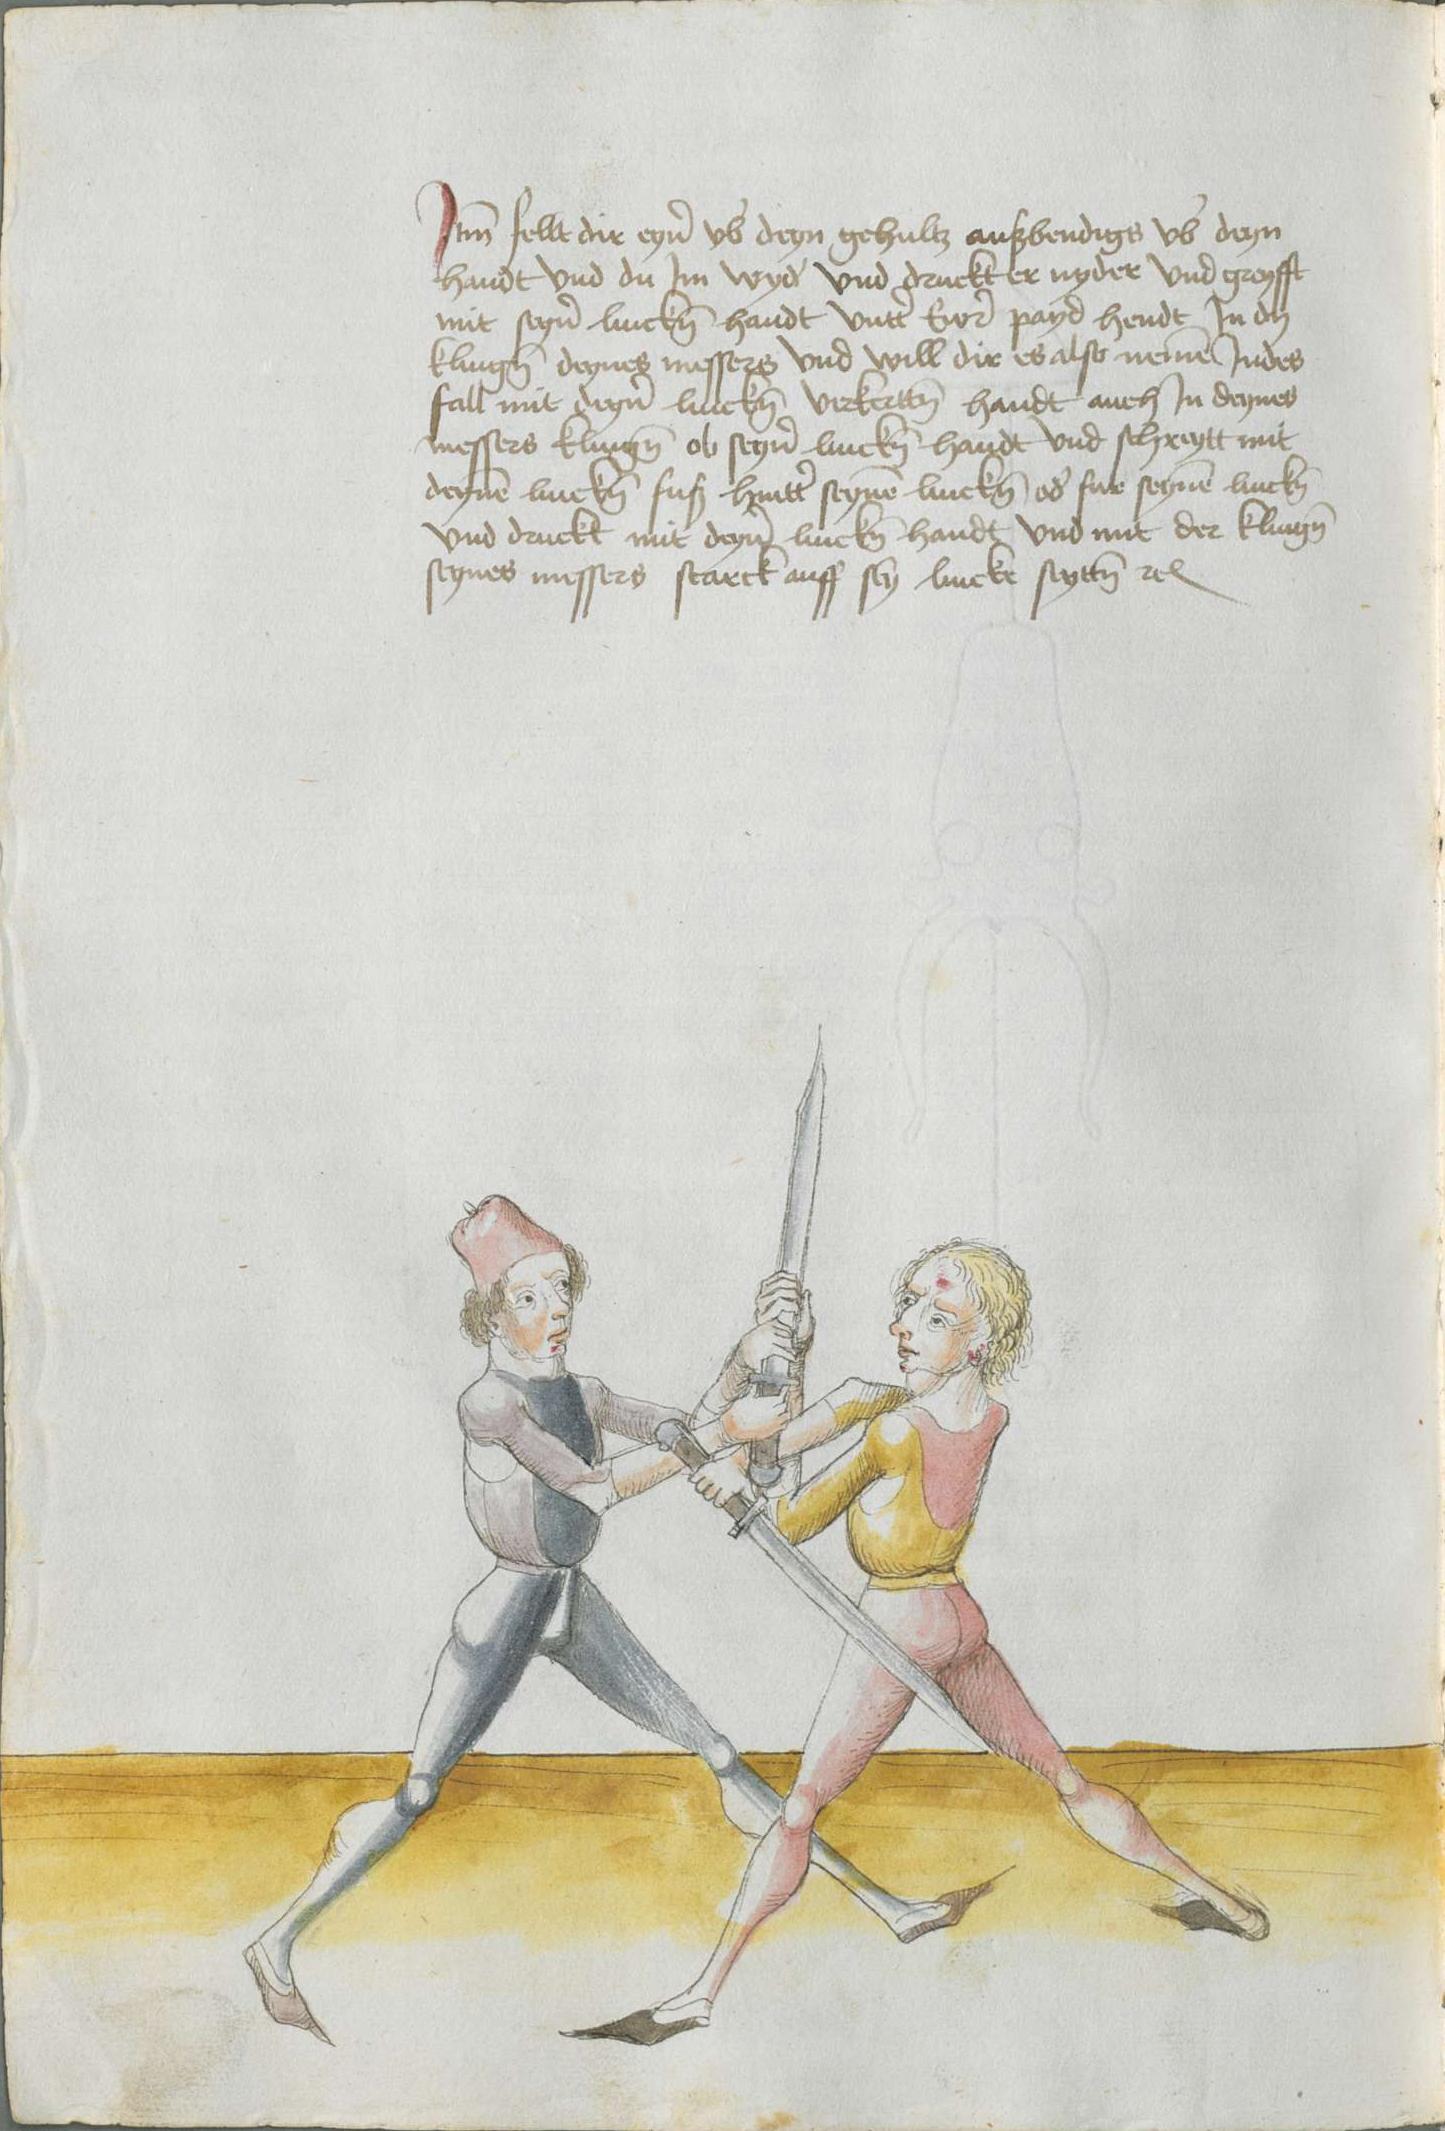 Itm̄ fellt dir eyn̄ vb̄ deyn gehultz außbendigs vb̄ deyn
handt vnd du Im wyd̄ vnd druckt er nyder vnd greyfft
mit seyn̄ linckn̄ handt vntt̄ ewr̄ payd hendt In dy
klingn̄ deynes messers vnd will dir es also nemē Indes
fall mit deyn̄ linckn̄ verkerttn̄ handt auch In deynes
messers klingn̄ ob seyn̄ linckn̄ handt vnd schreytt mit
deynē linckn̄ fuß hintt̄ seynē linckn̄ od̄ fur seynē linckn̄
vnd druckt mit deyn̄ linckn̄ handt vnd mit der klingn̄
seynes messers starck auff sey lincke seyttn̄ rc